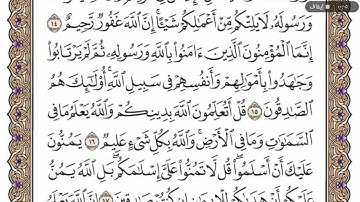 وَرَسُولَهُۥ لَا يَلِتْكُم مِّنْ أَعْمَٰلِكُمْ شَيْـًٔا ۚ إِنَّ ٱللَّهَ غَفُورٌ رَّحِيمٌ ١٤
إِنَّمَا ٱلْمُؤْمِنُونَ ٱلَّذِينَ ءَامَنُوا۟ بِٱللَّهِ وَرَسُولِهِۦ ثُمَّ لَمْ يَرْتَابُوا۟
وَجَٰهَدُوا۟ بِأَمْوَٰلِهِمْ وَأَنفُسِهِمْ فِى سَبِيلِ ٱللَّهِ ۚ أُو۟لَٰٓئِكَ هُمُ
ٱلصَّٰدِقُونَ ١٥ قُلْ أَتُعَلِّمُونَ ٱللَّهَ بِدِينِكُمْ وَٱللَّهُ يَعْلَمُ مَا فِى
ٱلسَّمَٰوَٰتِ وَمَا فِى ٱلْأَرْضِ ۚ وَٱللَّهُ بِكُلِّ شَىْءٍ عَلِيمٌ ١٦ يَمُنُّونَ
عَلَيْكَ أَنْ أَسْلَمُوا۟ ۖ قُل لَّا تَمُنُّوا۟ عَلَىَّ إِسْلَٰمَكُم ۖ بَلِ ٱللَّهُ يَمُنُّ
عَلَيْكُمْ أَنْ هَدَىٰكُمْ لِلْإِيمَٰنِ إِن كُنتُمْ صَٰدِقِينَ ١٧ إِنَّ ٱللَّهَ يَعْلَمُ